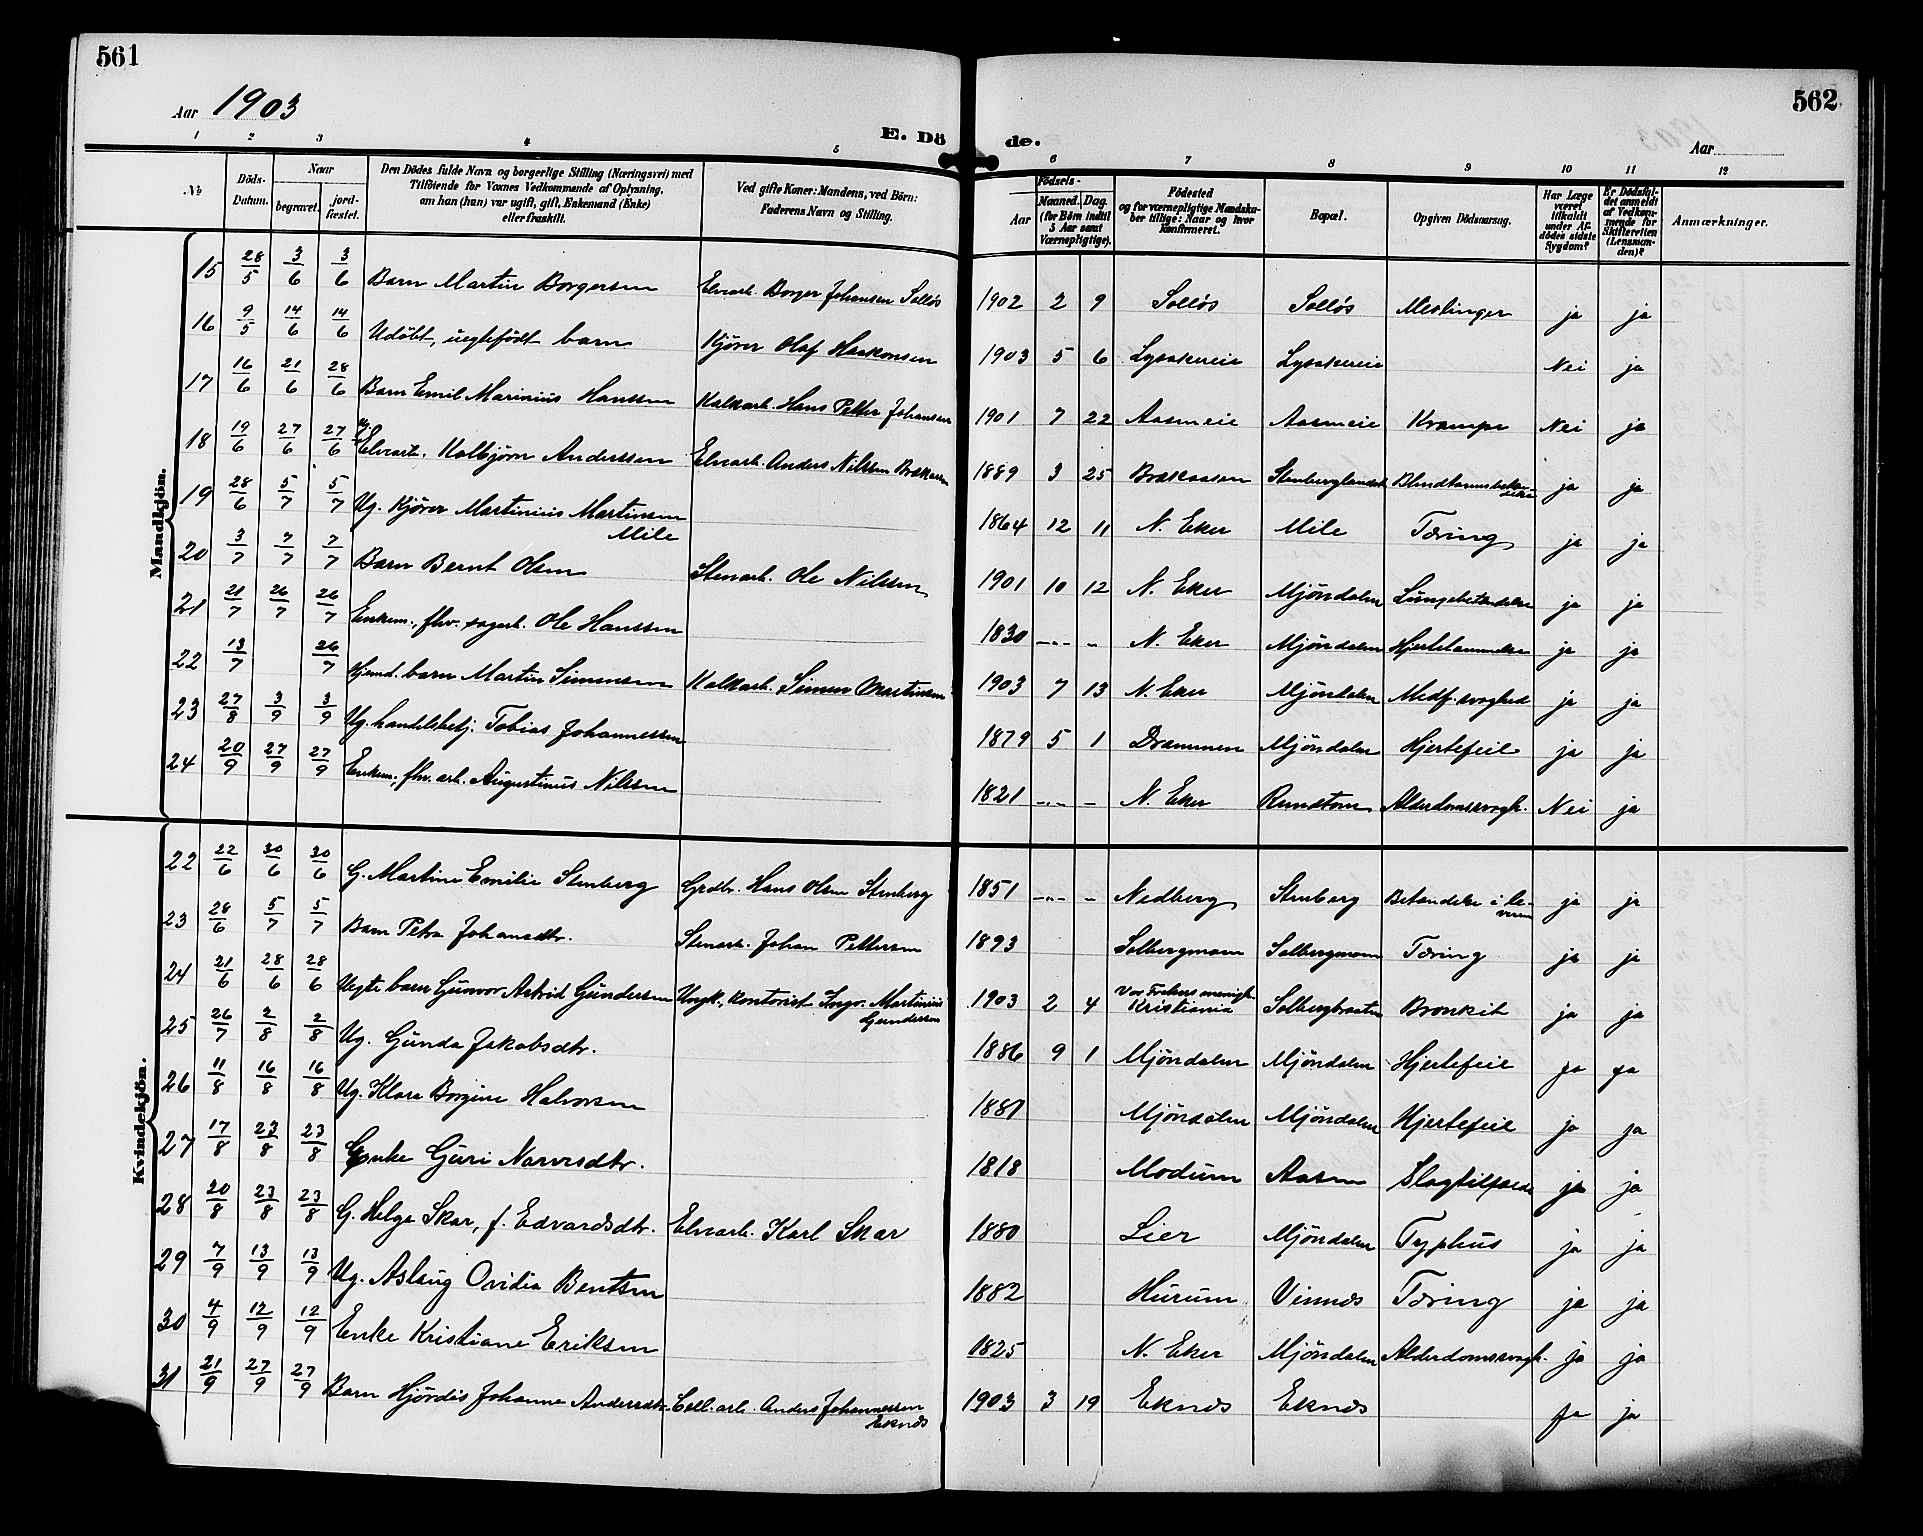 561
562
Aar 1903
Aar
E. Dö de.
1 2 3 4 5 6 7 8 9 10 11 12
No
Döds-Datum.
Naar
begravet.
jord-fæstet.
Den Dödes fulde Navn og borgerlige Stilling (Næringsvei) med
Tilföiende for Voxnes Vedkommende af Oplysning,
om han (hun) var ugift, gift, Enkemand (Enke)
eller fraskilt.
Ved gifte Koner: Mandens, ved Börn:
Faderens Navn og Stilling.
Födsels-
Aar
Maaned. Dag.
(for Börn indtil
5 Aar samt
Værnepligtige).
Födested
og for værnepligtige Mandska-
ber tillige: Naar og hvor
konfirmeret.
Bopæl.
Opgiven Dödsaarsag.
Har Læge
været
tilkaldt
under Af-
dödes sidste
Sygdom?
Er Dödsfal-
det anmeldt
af Vedkom-
mende for
Skifteretten
(Lensman-
den)?
Anmærkninger.
Mandkjön.
15 28/5 3/6 3/6 Barn Martin Borgersen Elvearb. Borger Johansen Solløs 1902 2 9 Solløs Solløs Meslinger ja ja
16 9/5 14/6 14/6 Udöbt, uegtefödt barn Kjører Olaf Haakonsen 1903 5 6 Lysakereie Lysakereie Nei ja
17 16/6 21/6 28/6 Barn Emil Marinius Hanssen Kalkarb. Hans Petter Johansen 1901 7 22 Aasmeie Aasmeie Krampe Nei ja
18 19/6 27/6 27/6 Ug. Elvearb. Kolbjørn Anderssen Elvearb. Anders Nilssen Brækaasen 1889 3 25 Brækaasen Stenberglandet ja ja
19 28/6 5/7 5/7 Ug. Kjører Martinius Martinsen
Mile 1864 12 11 N. Eker Mile Tæring ja ja
20 3/7 7/7 7/7 Barn Bernt Olsen Stenarb. Ole Nilssen 1901 10 12 N. Eker Mjöndalen Lungebetændelse ja ja
21 21/7 26/7 26/7 Enkem., fhv. sagarb. Ole Hanssen 1830 -"- - N. Eker Mjöndalen Hjertelammelse ja ja
22 13/7 26/7 Hjemd. barn Martin Simensen Kalkarb. Simen Martinsen 1903 7 13 N. Eker Mjöndalen Medf. svaghed ja ja
23 27/8 3/9 3/9 Ug. handelsbetj. Tobias Johannessen 1879 5 1 Drammen Mjöndalen Hjertefeil ja ja
24 20/9 27/9 27/9 Enkem., fhv. arb. Augustinus Nilssen 1821 -"- - N. Eker Rundtom Alderdomssvagh. Nei ja
Kvindekjön.
22 22/6 30/6 30/6 G. Martine Emilie Stenberg Grdbr. Hans Olsen Stenberg 1851 -"- - Nedberg Stenberg Betændelse i le-
veren ja ja
23 28/6 5/7 5/7 Barn Petra Johansdtr. Stenarb. Johan Pettersen 1893 Solbergmoen Solbergmoen Tæring ja ja
24 21/6 28/6 28/6 Uegte barn Gunvor Astrid Gundersen Ungk., kontorist Ingv. Martinius
Gundersen 1903 2 4 Vor Frelsers menigh.
Kristiania Solbergbraaten Bronkit ja ja
25 26/7 2/8 2/8 Ug. Gunda Jakobsdtr. 1886 9 1 Mjöndalen Mjöndalen Hjertefeil ja ja
26 11/8 16/8 16/8 Ug. Klara Borgine Halvorsen 1881 Mjöndalen Mjöndalen Hjertefeil ja ja
27 17/8 23/8 23/8 Enke Guri Narvesdtr. 1818 Modum Aasen Slagtilfælde ja ja
28 20/8 23/8 23/8 G. Helga Skar, f. Edvardsdtr. Elvearb. Karl Skar 1880 Lier Mjöndalen Typhus ja ja
29 7/9 13/9 13/9 Ug. Aslaug Ovidia Bentsen 1882 Hurum Vinnæs Tæring ja ja
30 4/9 12/9 12/9 Enke Kristiane Eriksen 1825 N. Eker Mjöndalen Alderdomssvagh. ja ja
31 21/9 27/9 27/9 Barn Hjördis Johanne Andersdtr. Cell. arb. Anders Johannessen
Eknæs 1903 3 19 Eknæs Eknæs ja ja